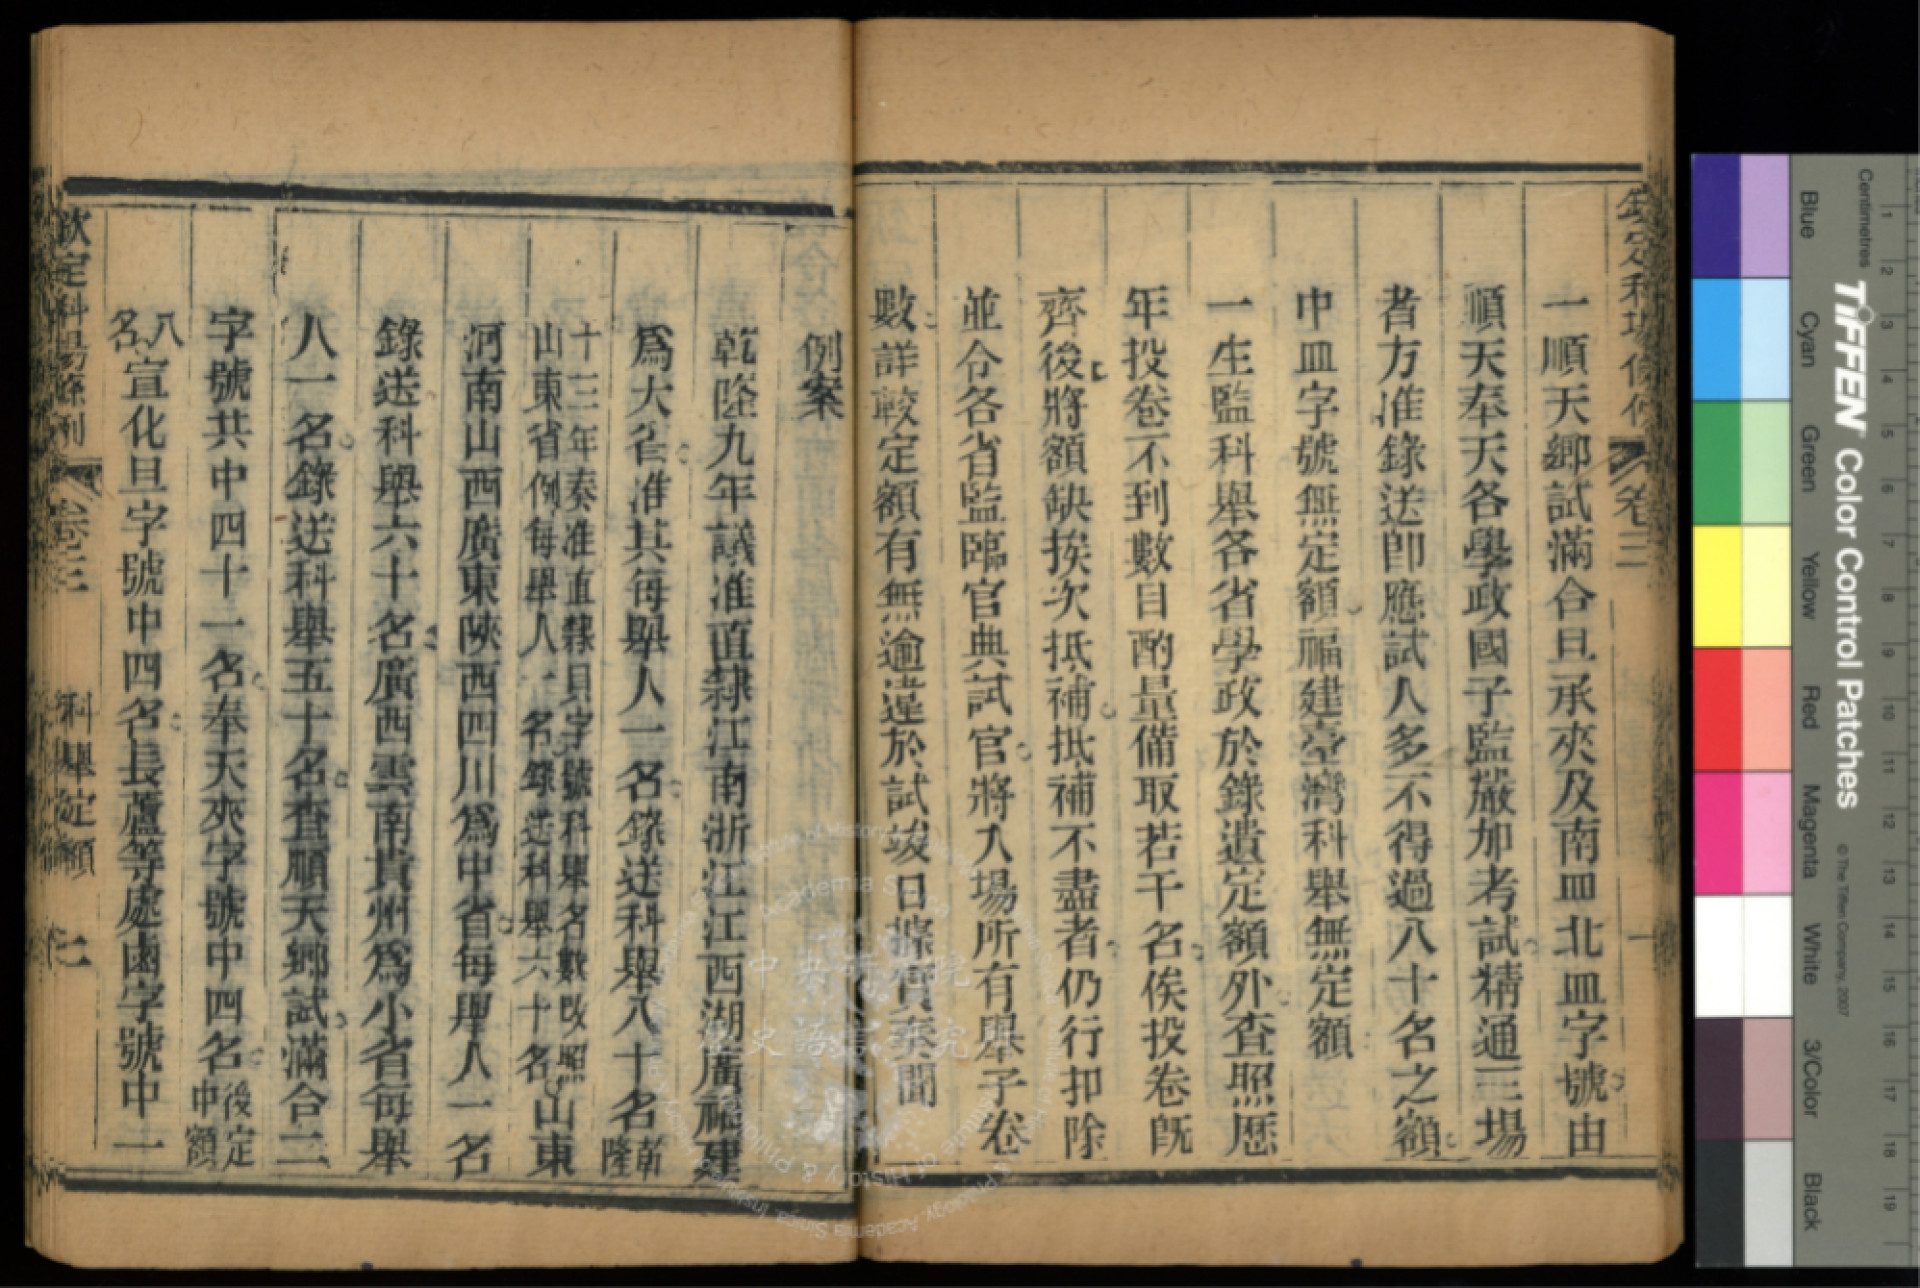 欽定科場條例 卷三 一
一順天鄉試滿合旦承夾及南皿北皿字號由
順天奉天各學政國子監嚴加考試精通三場
者方准錄送卽應試人多不得過八十名之額
中皿字號無定額福建臺灣科舉無定額
一生監科舉各省學政於錄遺定額外查照歷
年投卷不到數目酌量備取若干名俟投卷旣
齊後將額缺挨次抵補抵補不盡者仍行扣除
並令各省監臨官典試官將入場所有舉子卷
數詳較定額有無逾違於試竣日據實奏聞
例案
乾隆九年議准直隸江南浙江江西湖廣福建
爲大省准其每舉人一名錄送科舉八十名乾隆
十三年奏准直隸貝字號科舉名數改照山東省例每舉人一名錄送科舉六十名山東
河南山西廣東陝西四川爲中省每舉人一名
錄送科舉六十名廣西雲南貴州爲小省每舉
人一名錄送科舉五十名查順天鄉試滿合二
字號共中四十一名奉天夾字號中四名後定中額
八名宣化旦字號中四名長蘆等處鹵字號中一
欽定科場條例 卷三 科舉定額 二
Centimetres
TIFFEN Color Control Patches
© The Tiffen Company, 2007
Blue
Cyan
Green
Yellow
Red
Magenta
White
3/Color
Black
1 2 3 4 5 6 7 8 9 10 11 12 13 14 15 16 17 18 19
中央研究院
歷史語言研究所
Institute of History & Philology, Academia Sinica